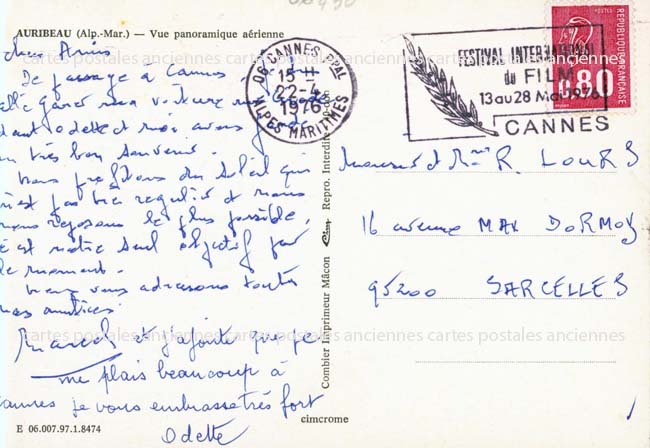 AURIBEAU (Alp.-Mar.) — Vue panoramique aérienne
chers Amis
De passage à Cannes
garer ma voiture
dont Odette et moi avons
un très bon souvenir.
Nous profitons du soleil qui
n'est pas très régulier et nous
nous reposons le plus possible,
c'est notre seul objectif par
le moment.
nous vous adressons toutes
nos amitiés.
Marcel et j'ajoute que je
me plais beaucoup à
Cannes je vous embrasse très fort
Odette
E 06.007.97.1.8474
cimcrome
Combier Imprimeur Mâcon Cim Repro. Interdite
06 CANNES PPAL
15 H
22-4
1976
ALPES MARITIMES
FESTIVAL INTERNATIONAL
du FILM
13 au 28 Mai 1976
CANNES
POSTES
REPUBLIQUE FRANÇAISE
0,80
Monsieur et Mme R. LOURS
16 avenue MAX DORMOY
95200 SARCELLES
cartes postales anciennes cartes postales anciennes cartes postales anciennes
cartes postales anciennes cartes postales anciennes cartes postales anciennes
cartes postales anciennes cartes postales anciennes cartes postales anciennes